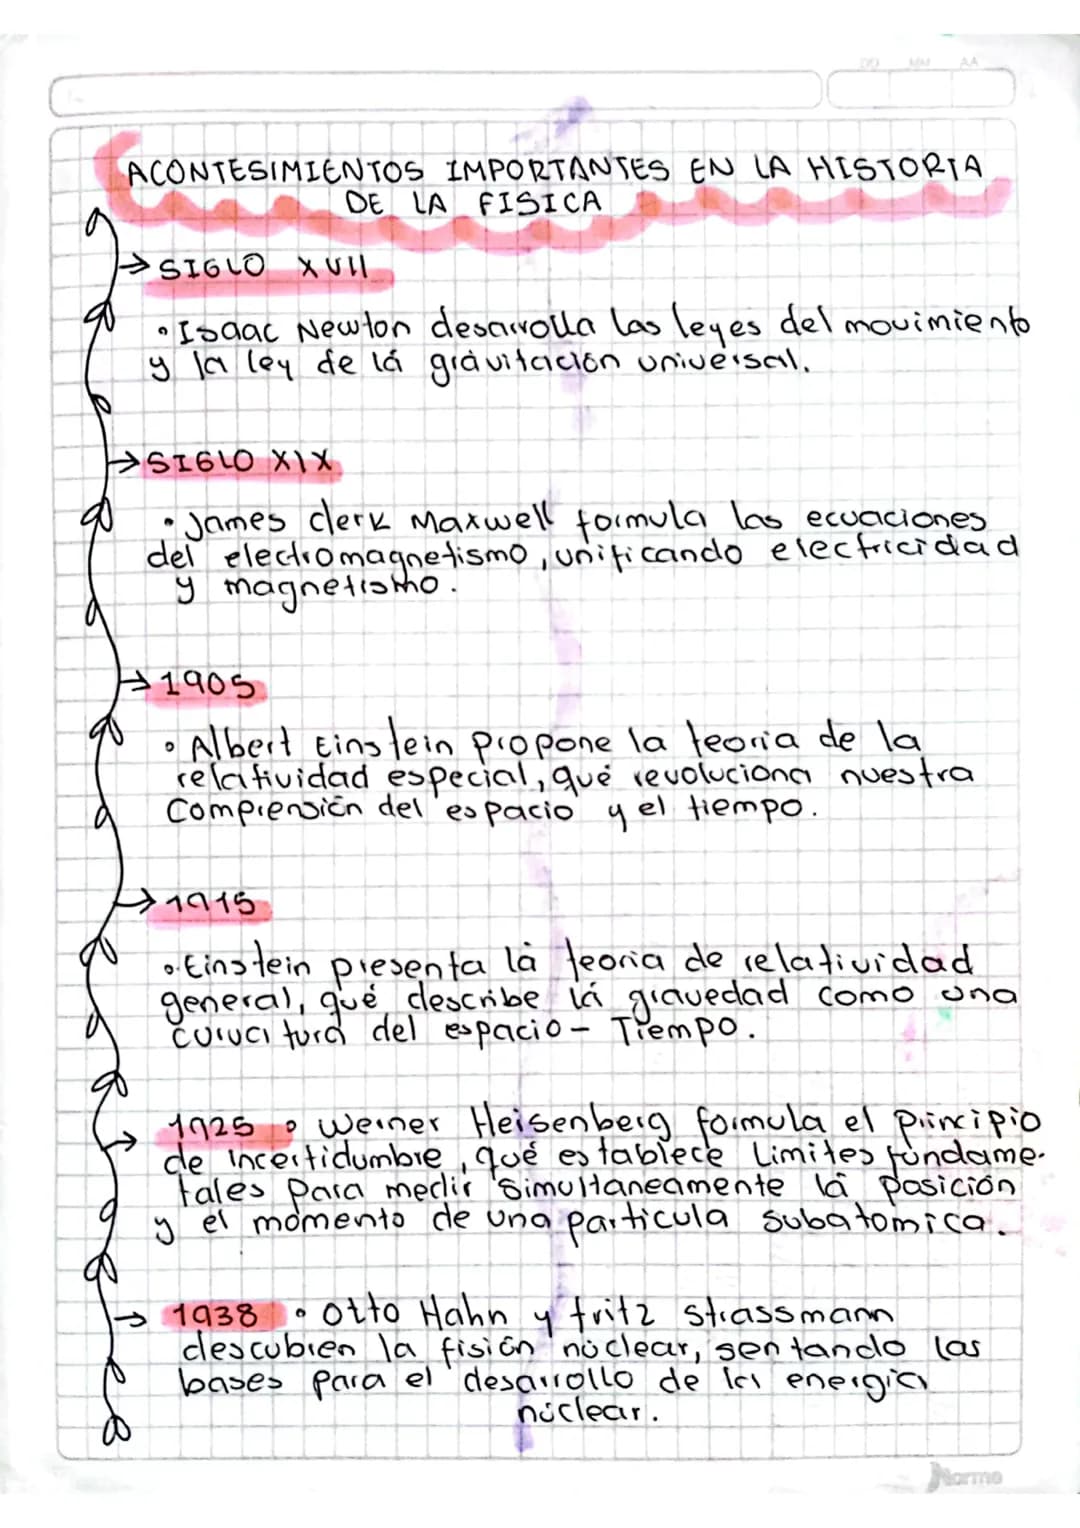 DD MM AA
ACONTESIMIENTOS IMPORTANTES EN LA HISTORIA
DE LA FISICA
→ SIGLO XVII
• Isaac Newton desarrolla las leyes del movimiento
y la ley de lá gravitación universal.
→ SIGLO XIX
• James clerk Maxwell formula las ecuaciones
del electromagnetismo, unificando electricidad
y magnetismo.
→ 1905
• Albert Einstein propone la teoria de la
relatividad especial, qué revoluciona nuestra
Comprensión del espacio y el tiempo.
→ 1915
• Einstein presenta lá teoria de relatividad
general, qué describe lá gravedad como una
curvatura del espacio - Tiempo.
→ 1925 • Werner Heisenberg formula el Principio
de incertidumbre, qué establece Limites fundame-
tales para medir simultaneamente lá posición
y el momento de una particula subatomica.
→ 1938 • Otto Hahn y fritz strassmann
descubren la fisión núclear, sentando las
bases para el desarrollo de la energia
núclear.
Norma